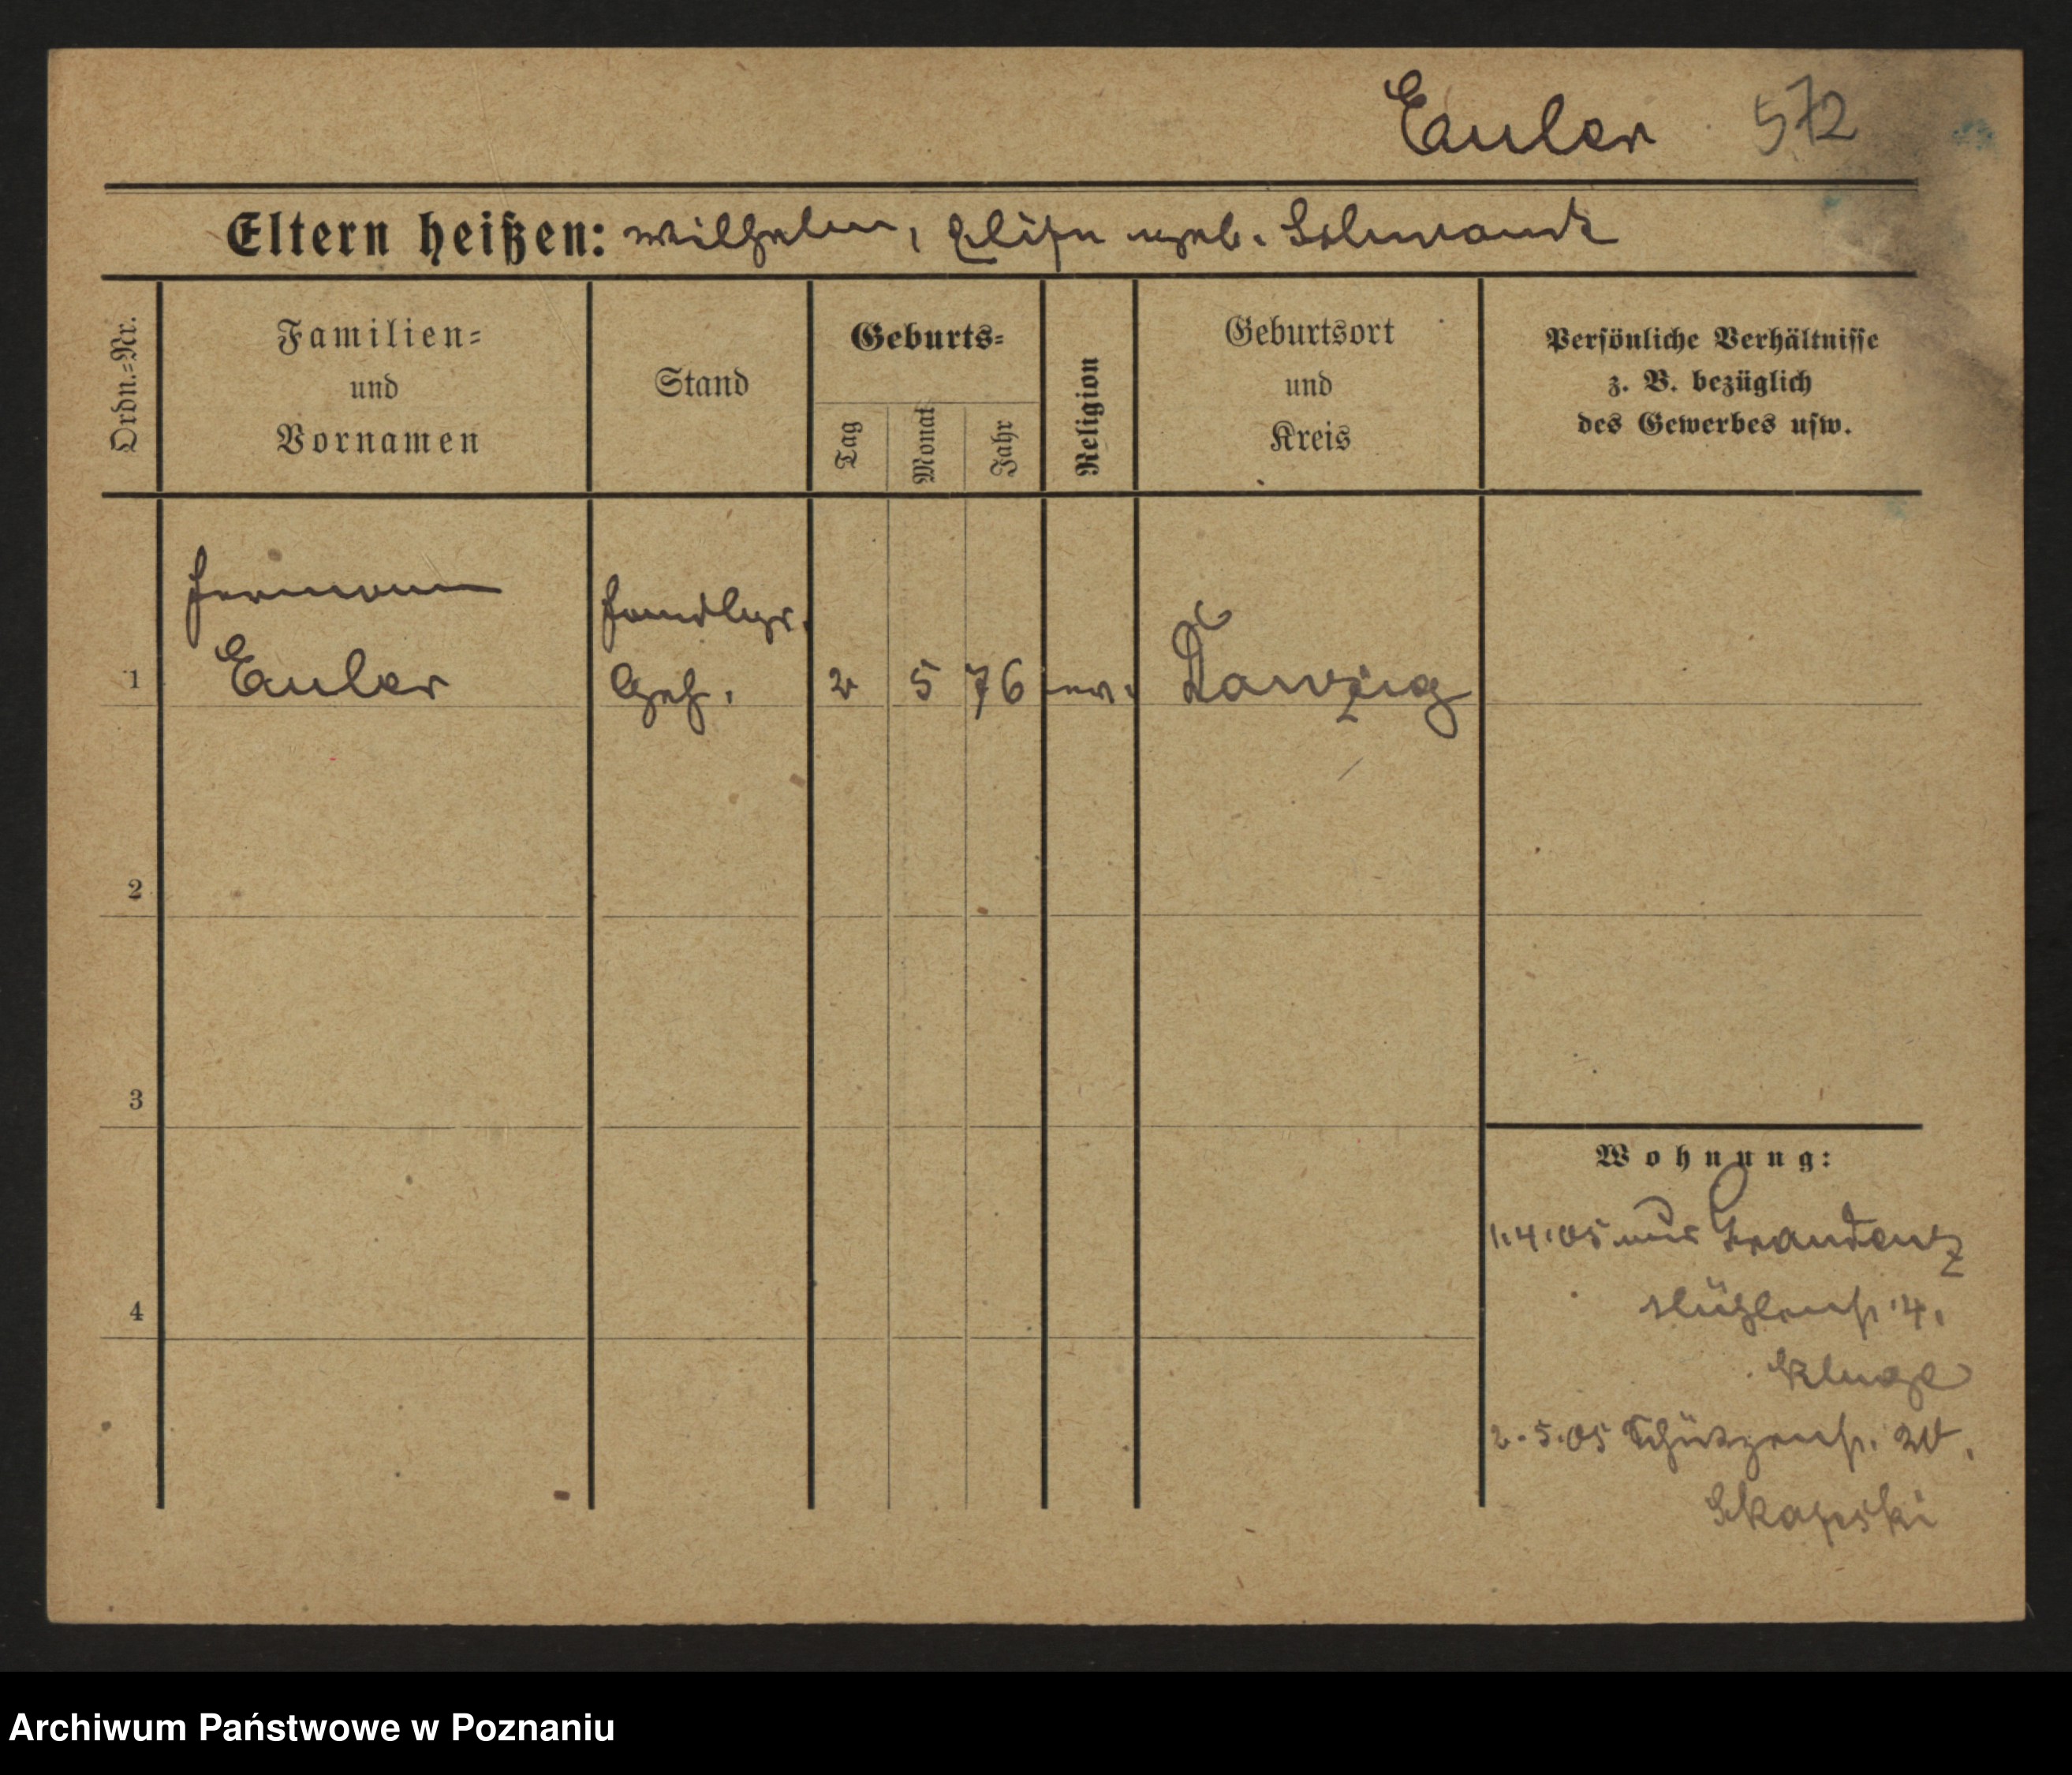 Euler 572
Eltern heißen: Wilhelm, Elise geb. Schwandt
Ordn.-Nr.
Familien-
und
Vornamen
Stand
Geburts-
Tag
Monat
Jahr
Religion
Geburtsort
und
Kreis
Persönliche Verhältnisse
z. B. bezüglich
des Gewerbes usw.
Hermann
Handlgs.
1 Euler Geh. 2 5 76 ev. Danzig
2
3
4
Wohnung:
1.4.05 aus Graudenz
Mühlenstr. 4.
Kluge
2.5.05 Schützenstr. 20.
Archiwum Państwowe w Poznaniu